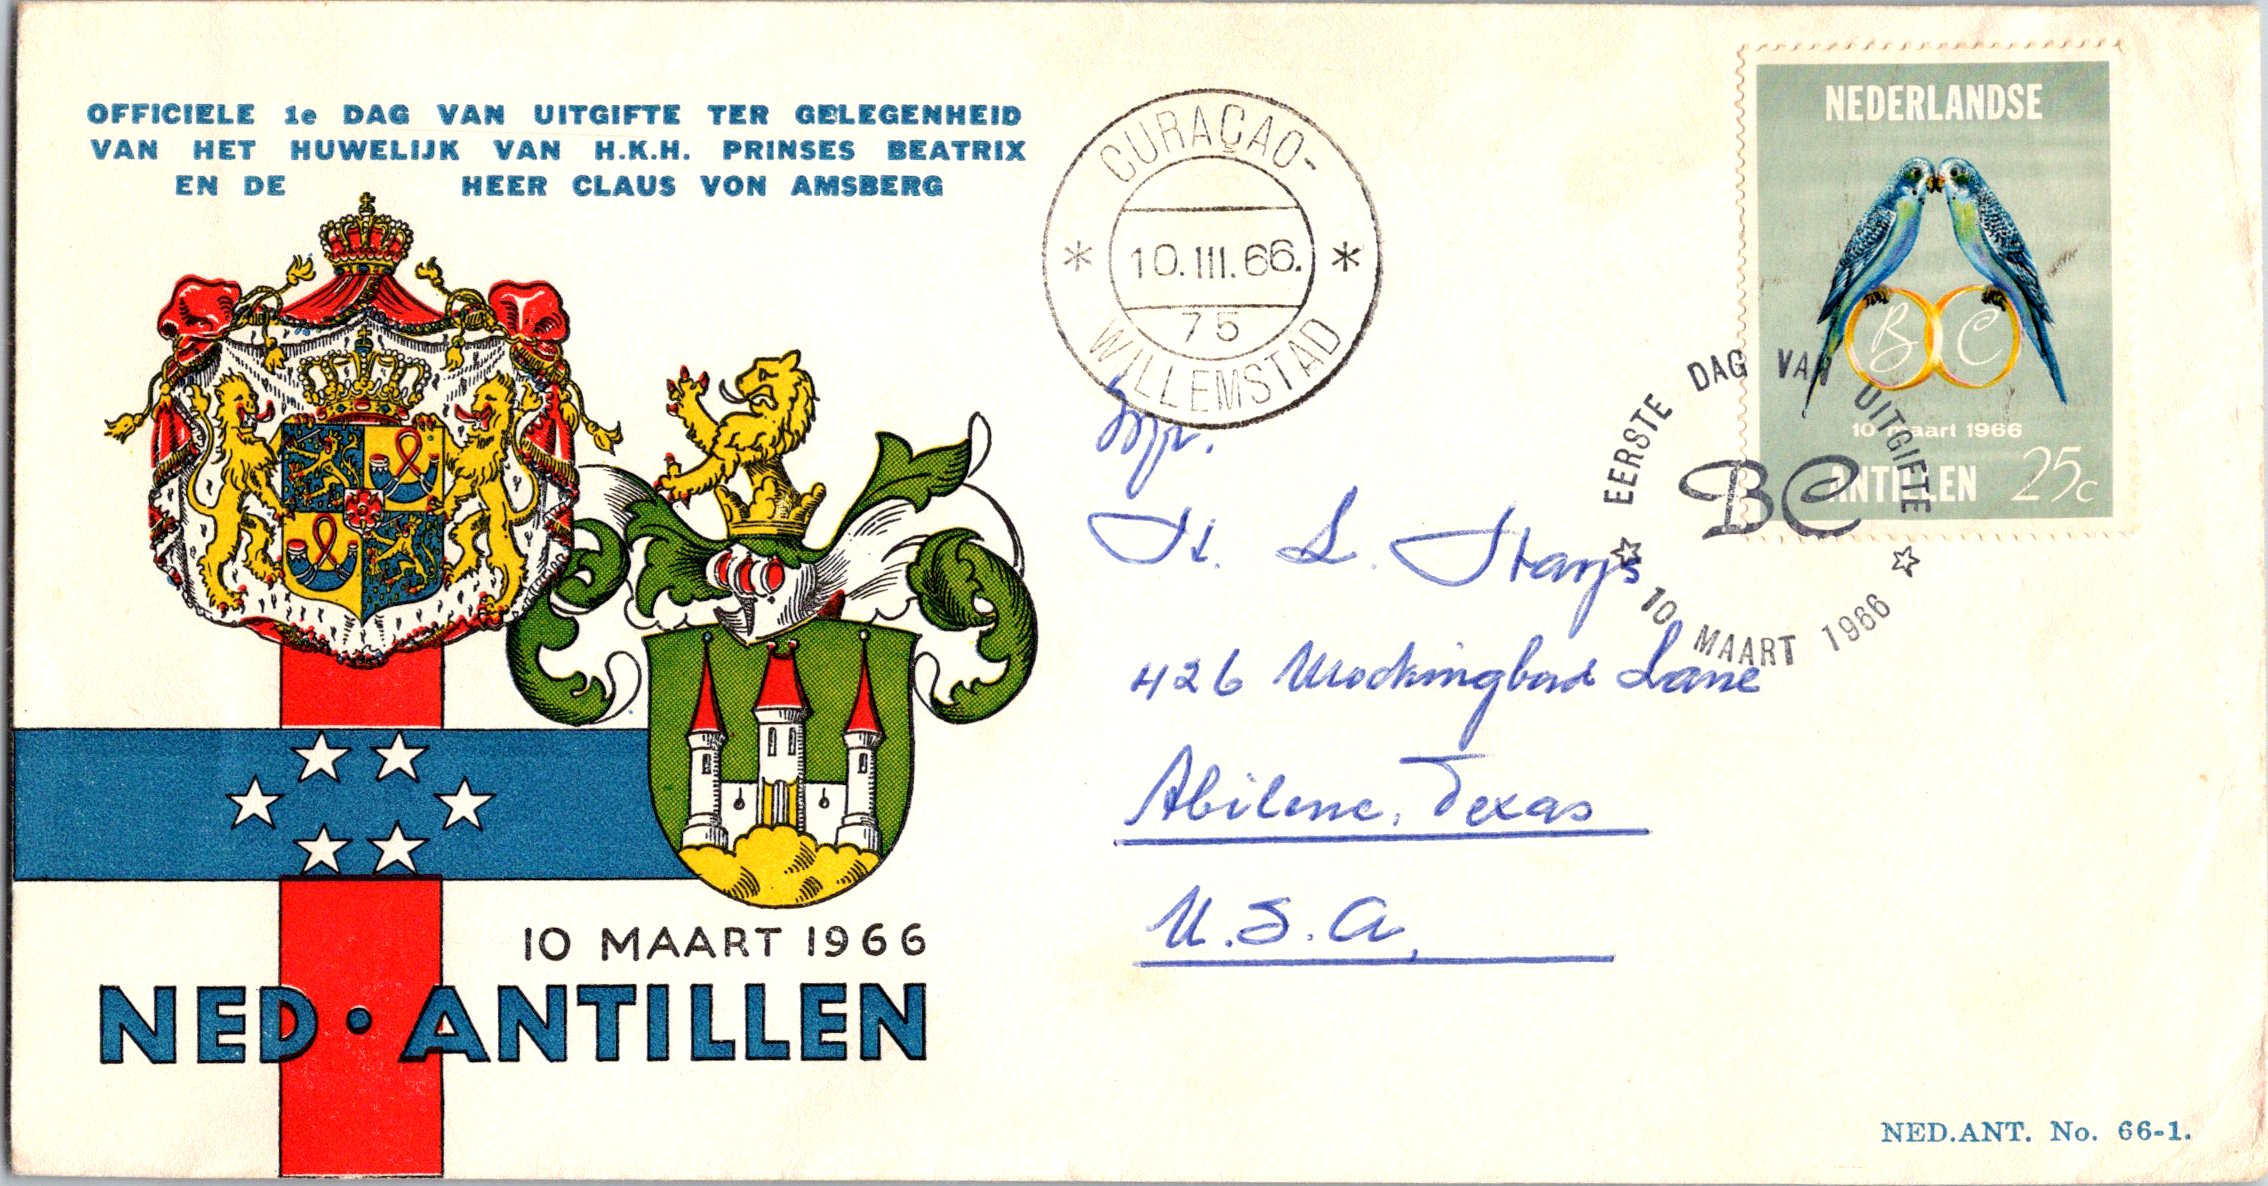 OFFICIELE 1e DAG VAN UITGIFTE TER GELEGENHEID
VAN HET HUWELIJK VAN H.K.H. PRINSES BEATRIX
EN DE HEER CLAUS VON AMSBERG
10 MAART 1966
NED. ANTILLEN
CURAÇAO-
* 10.III.66. *
75
WILLEMSTAD
NEDERLANDSE
B C
10 maart 1966
ANTILLEN 25c
EERSTE DAG VAN UITGIFTE
BC
10 MAART 1966
Mr.
H. L. Stays
426 Mockingbird Lane
Abilene, Texas
U.S.A.
NED.ANT. No. 66-1.